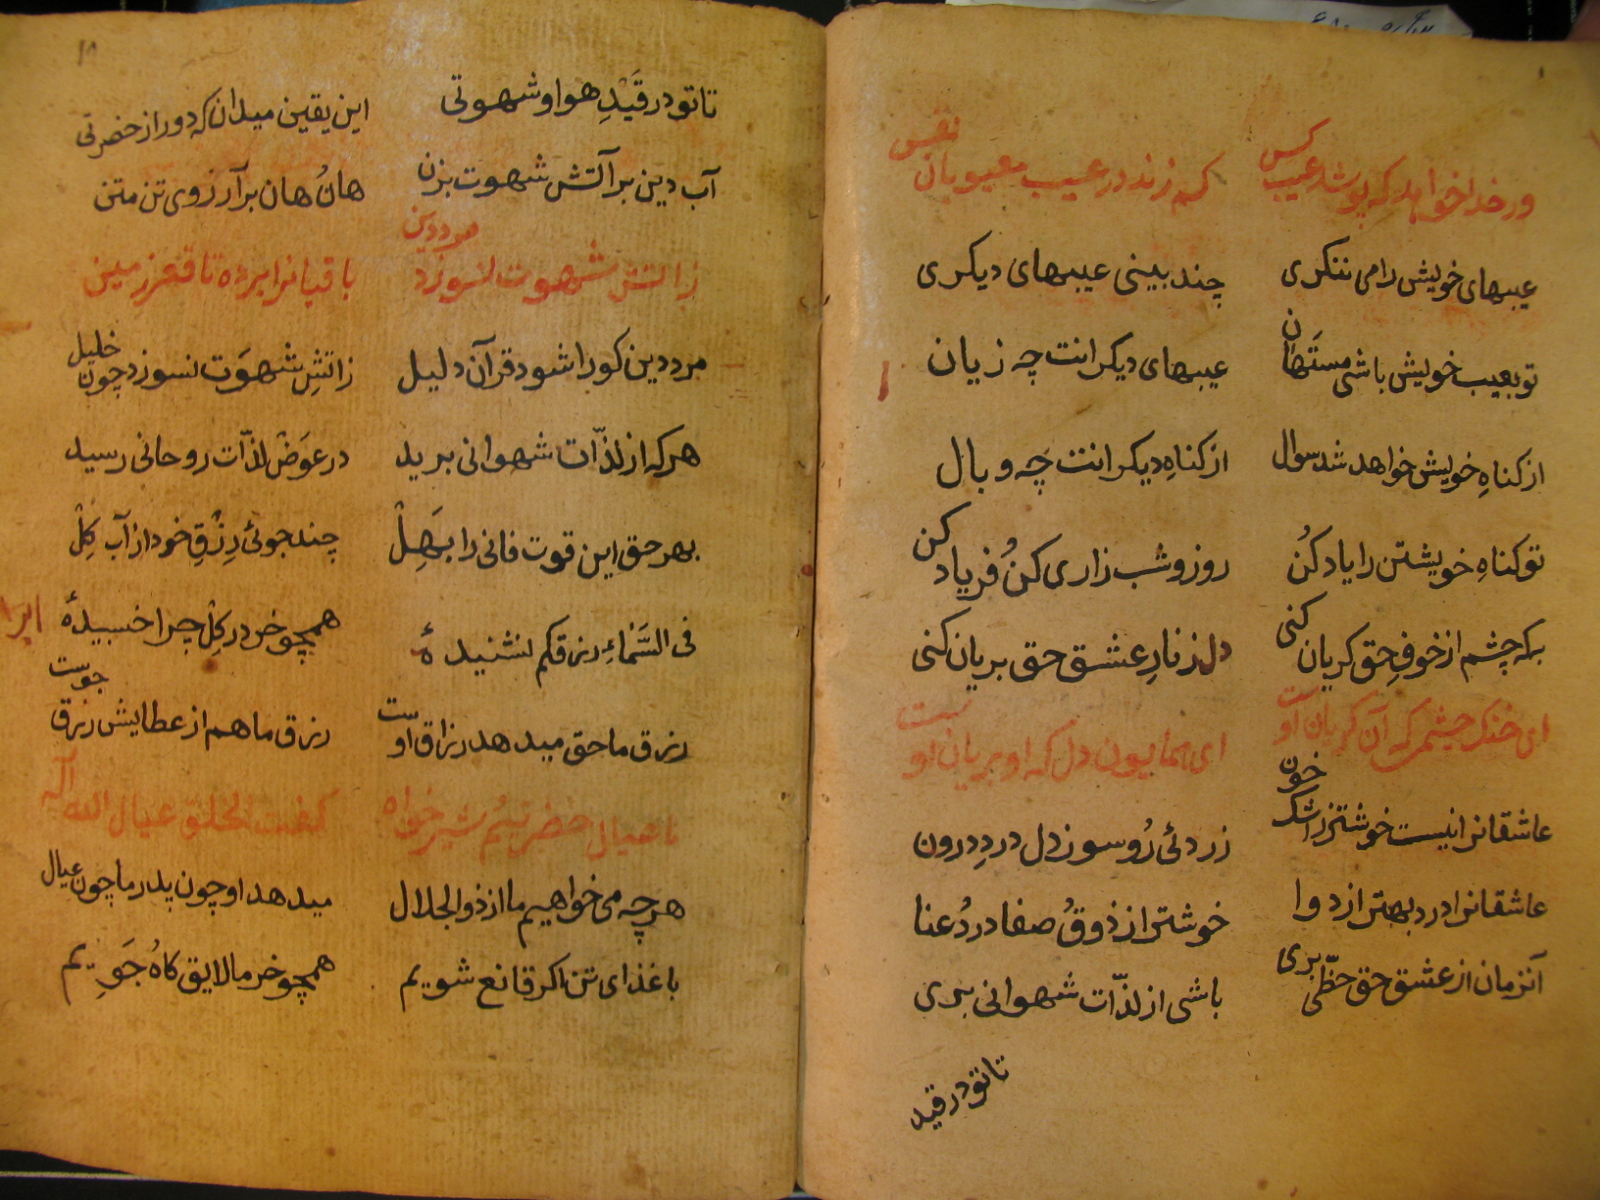 ور خدا خواهد که پوشد عیب کس    کم زند در عیب معیوبان نفس
عیبهای خویش را می ننکری    چند بینی عیبهای دیکری
تو بعیب خویش باشی مستهان    عیبهای دیکرانت چه زیان
از کناهِ خویش خواهد شد سوال    از کناهِ دیکرانت چه وبال
تو کناهِ خویشتن را یاد کُن    روز و شب زاری کنُ فریاد کن
بکه چشم از خوفِ حق کریان کنی    دل ز نارِ عشق حق بریان کنی
ای خنک چشمی که آن کریان اوست    ای همایون دل که او بریان اوست
عاشقانرا نیست خوشتر ز اشک خون    زردئی رُو سوز دل دردِ درون
عاشقانرا درد بهتر از دوا    خوشتر از ذوقُ صفا دردُ عنا
آنزمان از عشق حق حظّی بری    باشی از لذّات شهوانی بری
تا تو در قید
تا تو در قَیْدِ هوا و شهوتی    این یقین میدان که دور از حضرتی
آب دین بر آتش شهوت بزن    هانُ هان بر آرزوی تن متن
ز آتش شهوت نسوزد مرد دین    باقیانرا برده تا قعر زمین
مرد دین کو را شود قرآن دلیل    ز آتشِ شهوَت نسوزد چون خلیل
هر که از لذّات شهوانی برید    در عوَضْ لذّات روحانی رسید
بهر حق این قوت فانی را بهِلْ    چند جوئی رِزْقِ خود از آب کِلْ
فی السَّمَاءِ رزقکم نشنیدهٔ    همچو خر در کِلْ چرا خسبیدهٔ
رزق ما حق میدهد رزاق اوست    رزق ما هم از عطایش رزق جوست
ما عیال حضرتیم شیرخواه    کفت الخلق عیال الله اله
هر چه می خواهیم ما از ذو الجلال    میدهد او چون پدر ما چون عیال
با غذای تن اکر قانع شویم    همچو خر ما لایق کاهُ جَویم